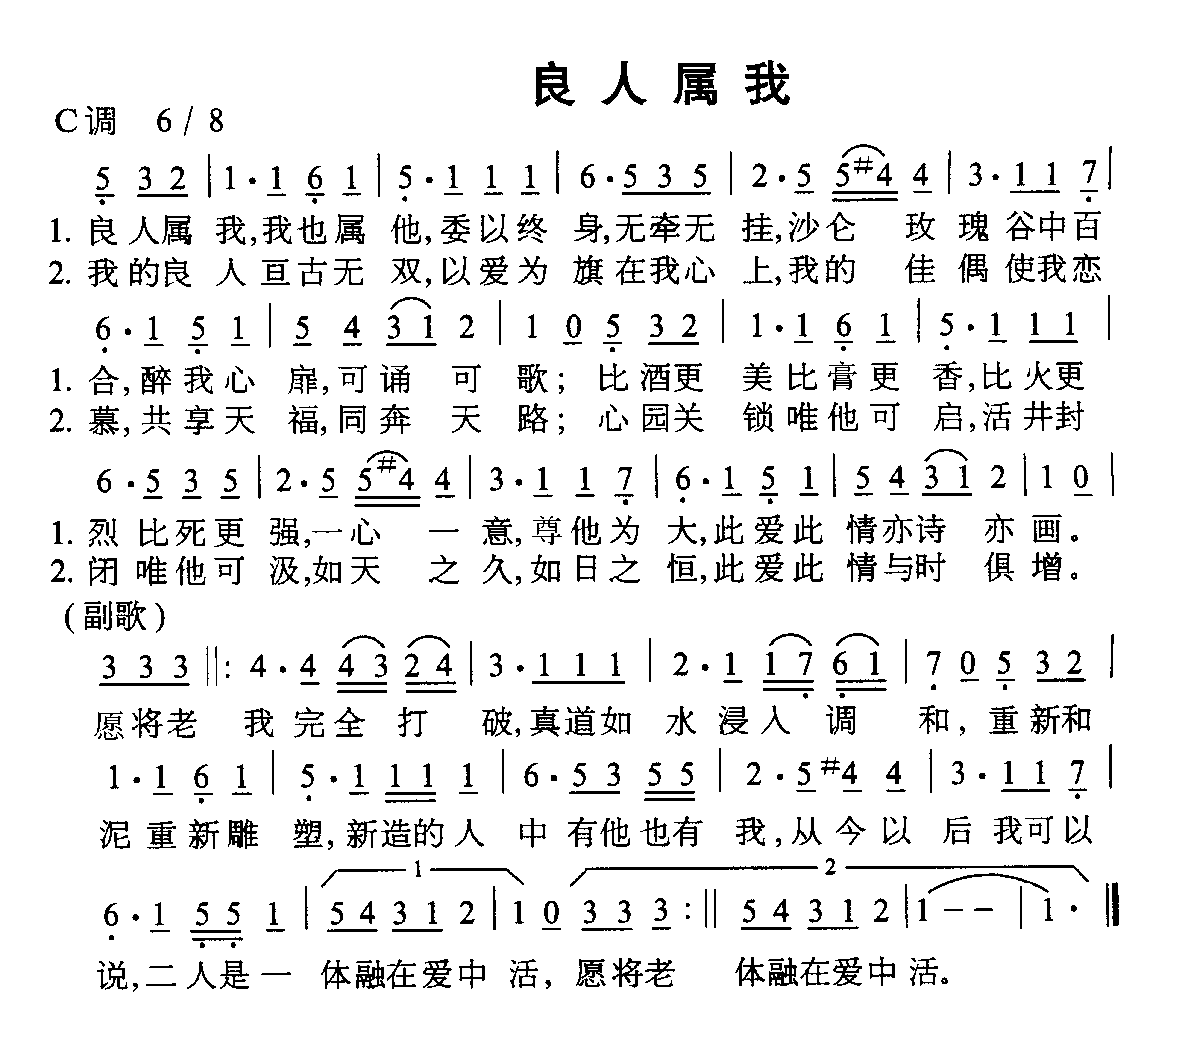 良人属我
C调 6/8
5 3 2 | 1 · 1 6 1 | 5 · 1 1 1 | 6 · 5 3 5 | 2 · 5 5 #4 4 | 3 · 1 1 7 |
1. 良人属 我,我也属 他,委以终 身,无牵无 挂,沙仑 玫 瑰 谷中百
2. 我的良 人亘古无 双,以爱为 旗在我心 上,我的 佳 偶 使我恋
6 · 1 5 1 | 5 4 3 1 2 | 1 0 5 3 2 | 1 · 1 6 1 | 5 · 1 1 1 |
1. 合,醉我心 扉,可诵 可 歌; 比酒更 美比膏更 香,比火更
2. 慕,共享天 福,同奔 天 路; 心园关 锁唯他可 启,活井封
6 · 5 3 5 | 2 · 5 5 #4 4 | 3 · 1 1 7 | 6 · 1 5 1 | 5 4 3 1 2 | 1 0 |
1. 烈比死更 强,一心 一 意,尊他为 大,此爱此 情亦诗 亦画。
2. 闭唯他可 汲,如天 之 久,如日之 恒,此爱此 情与时 俱增。
(副歌)
3 3 3 ||: 4 · 4 4 3 2 4 | 3 · 1 1 1 | 2 · 1 1 7 6 1 | 7 0 5 3 2 |
愿将老 我完全打 破,真道如 水浸入调 和,重新和
1 · 1 6 1 | 5 · 1 1 1 1 | 6 · 5 3 5 5 | 2 · 5 #4 4 | 3 · 1 1 7 |
泥重新雕 塑,新造的人 中有他也有 我,从今以 后我可以
1 2
6 · 1 5 5 1 | 5 4 3 1 2 | 1 0 3 3 3 :|| 5 4 3 1 2 | 1 - - | 1 · ||
说,二人是一 体融在爱中 活, 愿将老 体融在爱中 活。